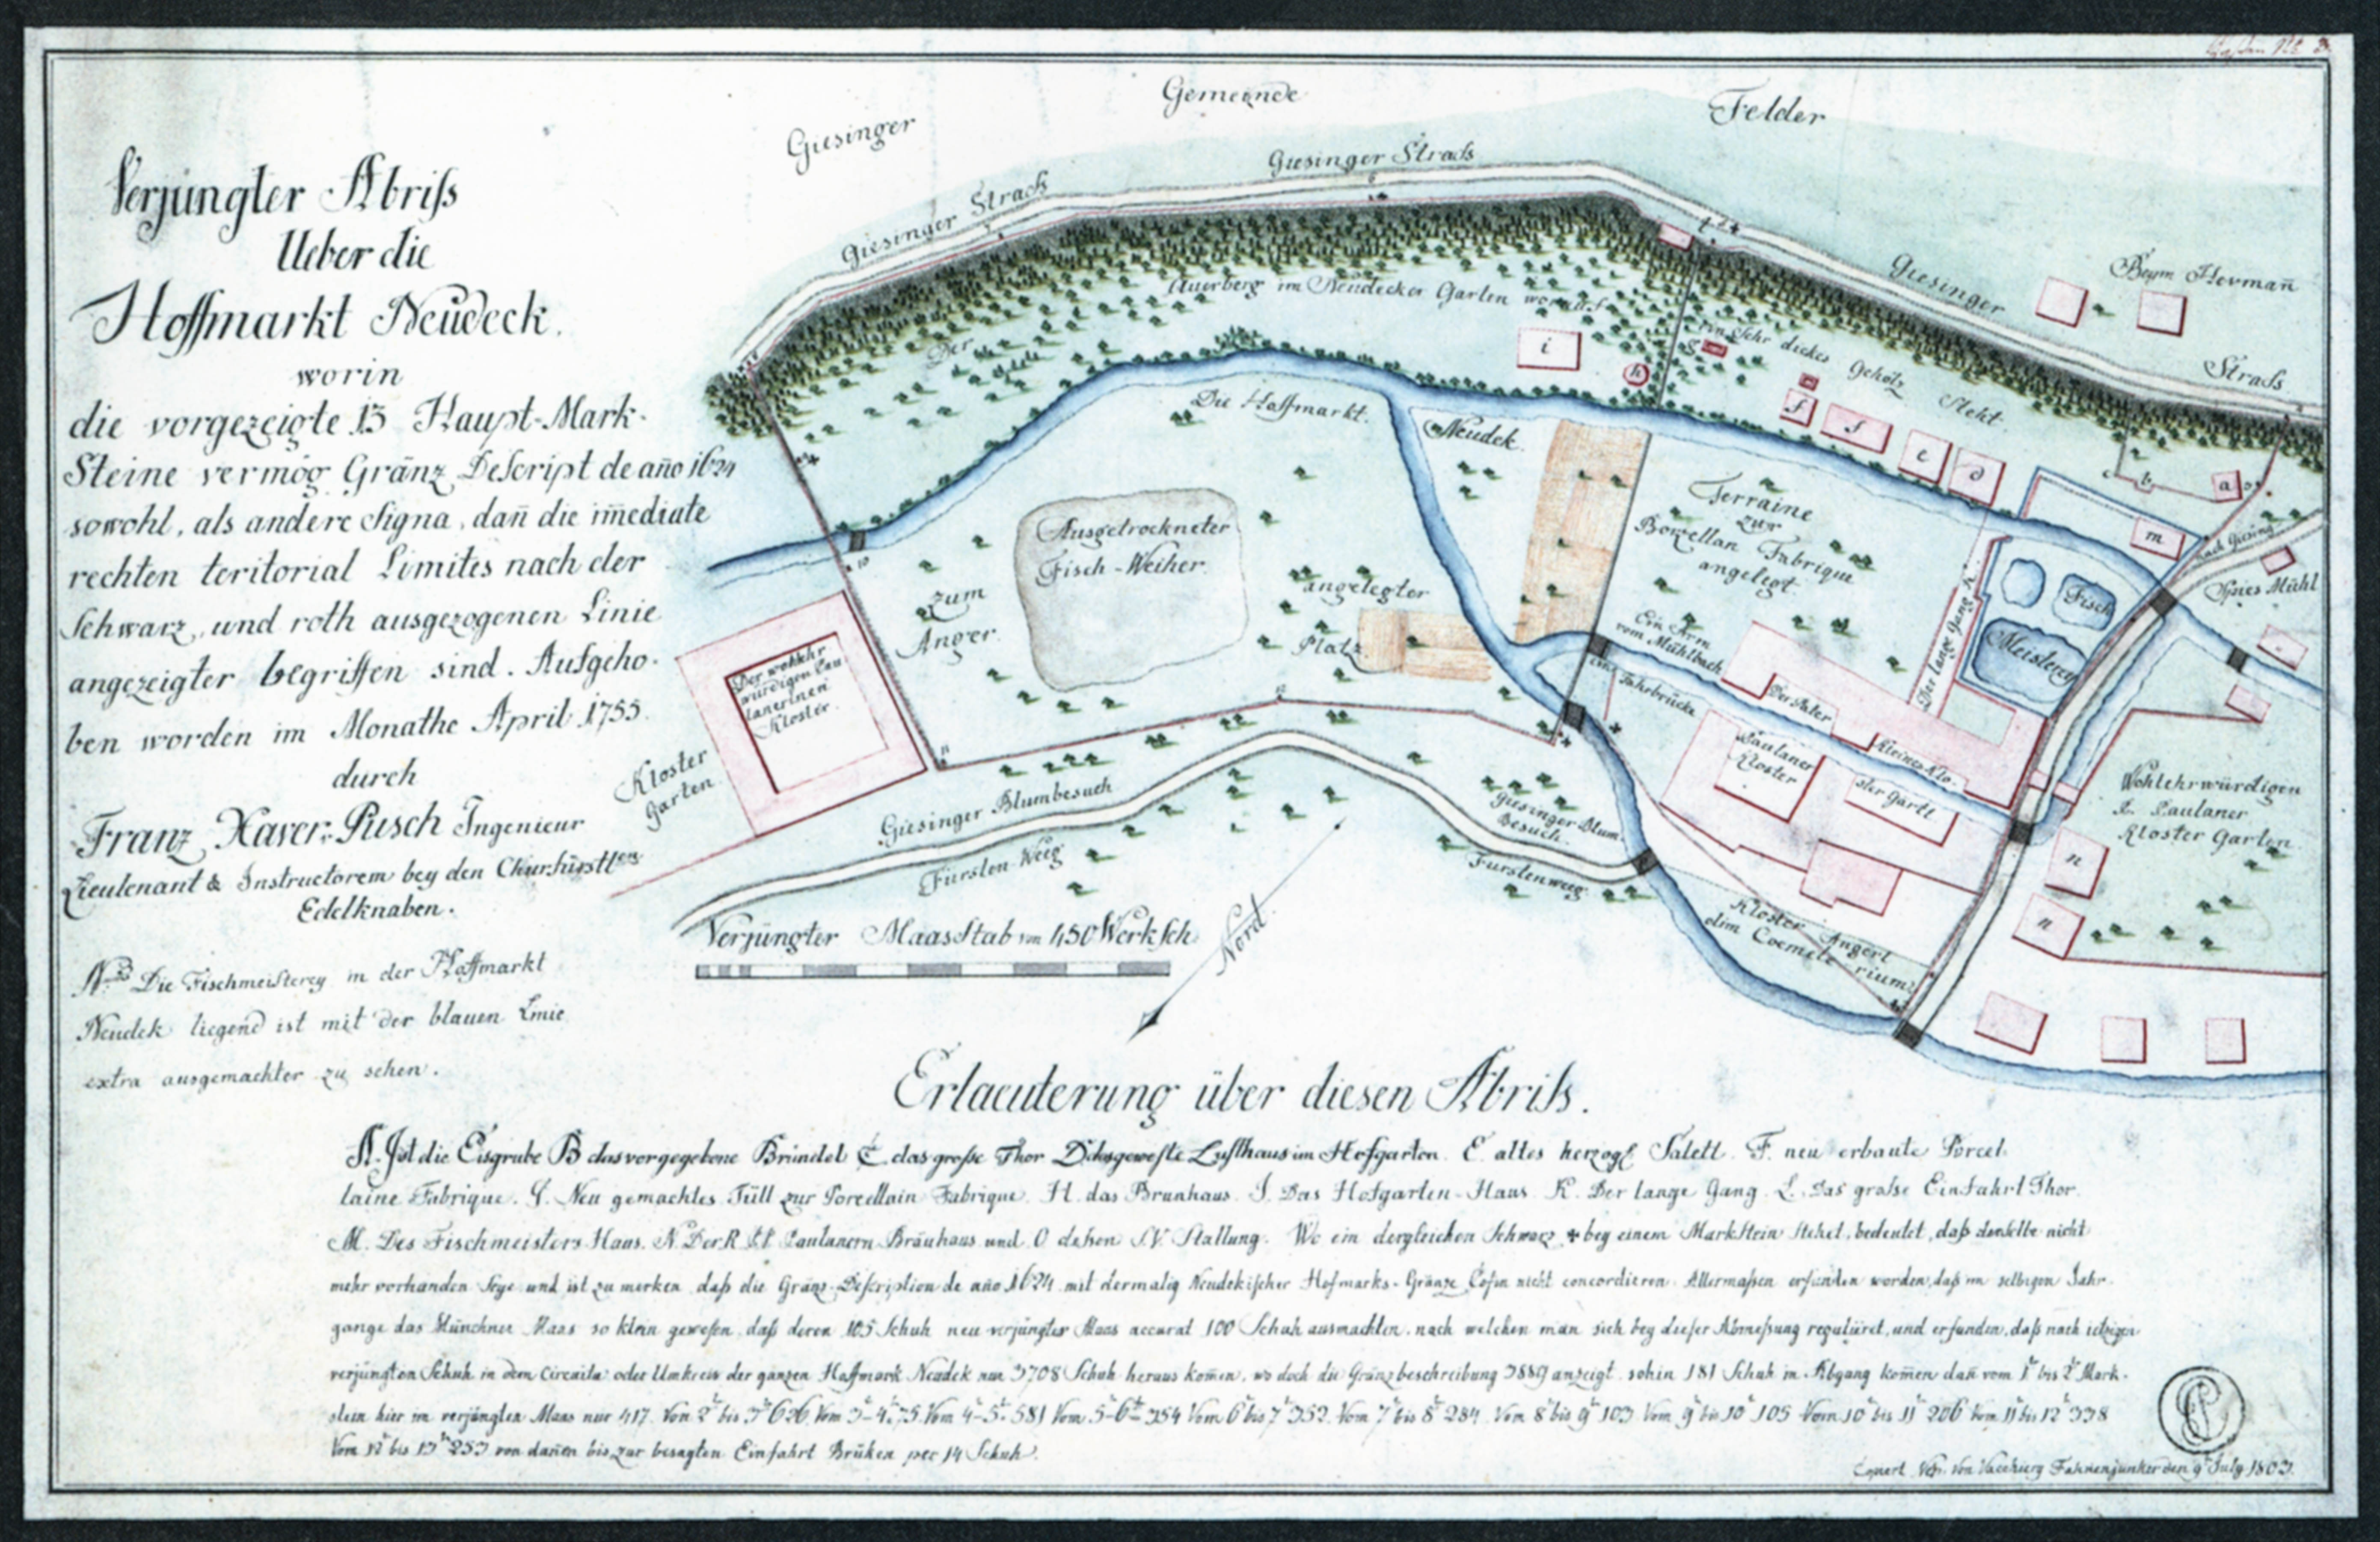 Verjüngter Abriſs
Ueber die
Hoffmarkt Neüdeck.
worin
die vorgezeigte 13 Haupt-Mark-
Steine vermög Gränz Deſcript de año 1624
sowohl, als andere Signa, dañ die im̄ediate
rechten teritorial Limites nach der
Schwarz, und roth ausgezogenen Linie
angezeigter begriffen sind. Aufgeho-
ben worden im Monathe April 1755.
durch
Franz Xaver Pusch Ingenieur
Lieutenant & Instructorem bey den Churfürstl
Edelknaben.
Die Fischmeisterey in der Hoffmarkt
Neudek liegend ist mit der blauen Linie
extra ausgemachter zu sehen.
Giesinger
Gemeinde
Felder
Giesinger Straſs
Giesinger Straſs
Giesinger
Straſs
Beym Hermañ
Der Auerberg im Neüdecker Garten worauf
ein Sehr dickes Gehölz Steht.
i
h
g
f
f
e
d
c
b
a
m
Die Hoffmarkt
Neudek.
Ausgetrockneter
Fisch-Weiher.
zum
Anger
angelegter
Platz
Terraine
zur
Borzellan Fabrique
angelegt
Ein Arm
vom Mühlbach
Fahrbrücke
Der lange Gang k.
Fisch
Meisterey
nach Giesing
Spies Mühl
Der wohlehr
würdigen Pau
lanerinen
Kloster.
Kloster
Garten
Giesinger Blumbesuch
Fürsten Weeg
Giesinger Blum
Besuch.
Furstenweeg
Paulaner
Kloster
Kleines Klo-
ster Gärtl
Wohlehrwürdigen
Paulaner
Kloster Garten
n
n
Kloster Angerl
olim Coemete rium
Verjüngter MaasStab von 450 WerkSch
Nord
Erlaeuterung über diesen Abriſs.
A. Ist die Eisgrube B das vorgegebene Bründel C. das groſse Thor D das geweſte Lusthaus im Hofgarten. E. altes herzogl Salett. F. neu erbaute Porcel
laine Fabrique. G. Neu gemachtes Füll zur Porcellain Fabrique. H. das Brunhaus. I. Das Hofgarten-Haus K. Der lange Gang. L. Das groſse Einfahrt Thor.
M. Des Fischmeisters Haus. N. Der R P.P. Paulanern Bräuhaus und O deſsen S.V. Stallung. Wo ein dergleichen Schwarz + bey einem MarkStein Stehet, bedeutet, daſs derselbe nicht
mehr vorhanden Seye und ist zu merken daſs die Gränz-Deſcription de año 1624 mit dermalig Neudekiſcher Hofmarks-Gränze nicht concordieren. Allermaſsen erfunden worden, daſs im selbigen Jahr-
gange das Münchner Maas so klein geweſen, daſs deren 105 Schuh neu verjüngter Maas accurat 100 Schuh ausmachten, nach welchen man sich bey dieſer Abmeſsung reguliret, und erfunden, daſs nach ietzigen
verjüngten Schuh in dem Circuitu oder Umkreis der ganzen Hoffmark Neudek nur 3708 Schuh heraus kom̄en, wo doch die Gränzbeschreibung 3889 anzeigt, sohin 181 Schuh in Abgang kom̄en dañ vom 1 bis 2 Mark-
stein hier im verjüngten Maas nur 417. Vom 2 bis 3 636 Vom 3-4. 75. Vom 4-5. 581 Vom 5-6 354 Vom 6 bis 7 352. Vom 7 bis 8 284. Vom 8 bis 9 103 Vom 9 bis 10 105 Vom 10 bis 11 206 Vom 11 bis 12 338
Vom 12 bis 13 253 von dañen bis zur besagten Einfahrt Brüken per 14 Schuh.
Copiert von Fahnenjunker den 9 July 1803.